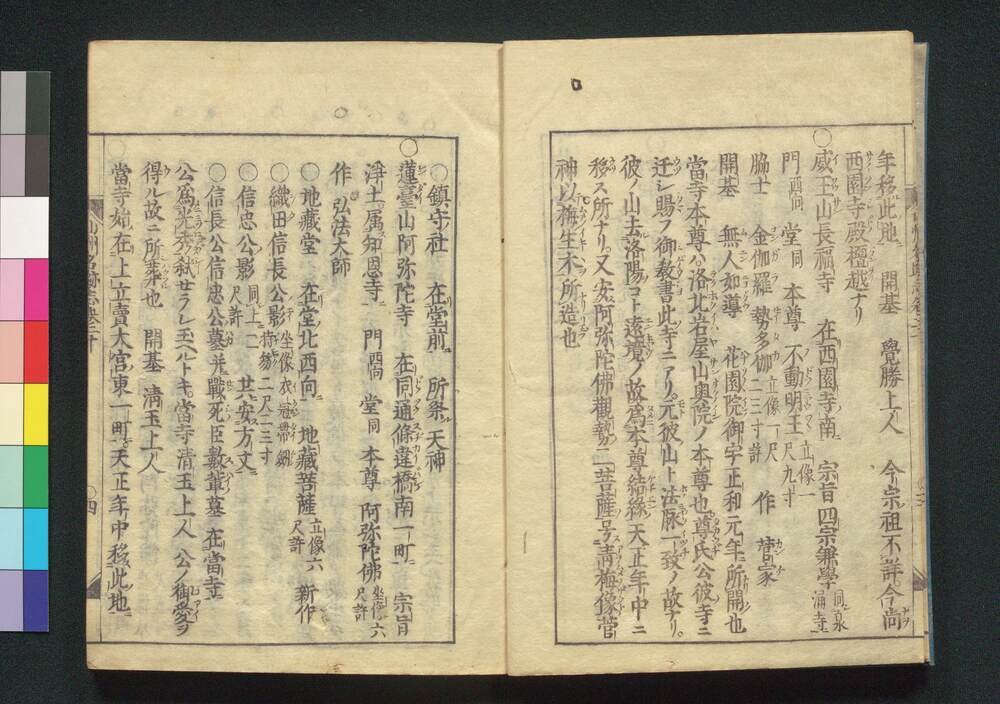 年移此地 開基 覺勝上人 今宗祖不詳今尚
西園寺殿檀越ナリ
○威王山長福寺 在西園寺南 宗旨四宗兼學同泉涌寺
門酉向 堂同 本尊 不動明王立像一尺九寸
脇士 金伽羅 勢多伽立像一尺二三寸許 作 菅家
開基 無人如導 花園院御宇正和元年所開也
當寺本尊ハ洛北岩屋山奥院ノ本尊也尊氏公彼寺ニ
迁シ賜フ御教書此寺ニアリ元彼山ト法脉一致ノ故ナリ
彼ノ山去洛陽コト遠境ノ故爲本尊結緣天正年中ニ
移ス所ナリ又安阿弥陀佛觀勢二菩薩号青梅像菅
神以梅生木所造也
○鎮守社 在堂前 所祭天神
○蓮臺山阿弥陀寺 在同通條違橋南一町 宗旨
淨土属知恩寺 門酉向 堂同 本尊 阿弥陀佛坐像六尺許
作 弘法大師
○地藏堂 在堂北西向 地藏菩薩立像六尺許 新作
○織田信長公影坐像衣冠帶劔持笏二尺二三寸
○信忠公影同上二尺許 共安方丈
○信長公信忠公墓并戰死臣數輩墓 在當寺
公爲光秀弑セラレ玉ヘルトキ當寺清玉上人 公ノ御愛ヲ
得ル故ニ所葬也 開基 清玉上人
當寺始在上立賣大宮東一町天正年中移此地
四